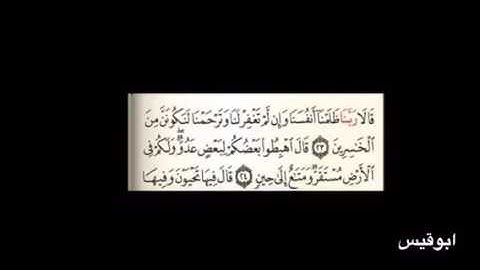 قَالَا رَبَّنَا ظَلَمْنَآ أَنفُسَنَا وَإِن لَّمْ تَغْفِرْ لَنَا وَتَرْحَمْنَا لَنَكُونَنَّ مِنَ
ٱلْخَٰسِرِينَ ٢٣ قَالَ ٱهْبِطُوا۟ بَعْضُكُمْ لِبَعْضٍ عَدُوٌّ ۖ وَلَكُمْ فِى
ٱلْأَرْضِ مُسْتَقَرٌّ وَمَتَٰعٌ إِلَىٰ حِينٍ ٢٤ قَالَ فِيهَا تَحْيَوْنَ وَفِيهَا
ابوقيس